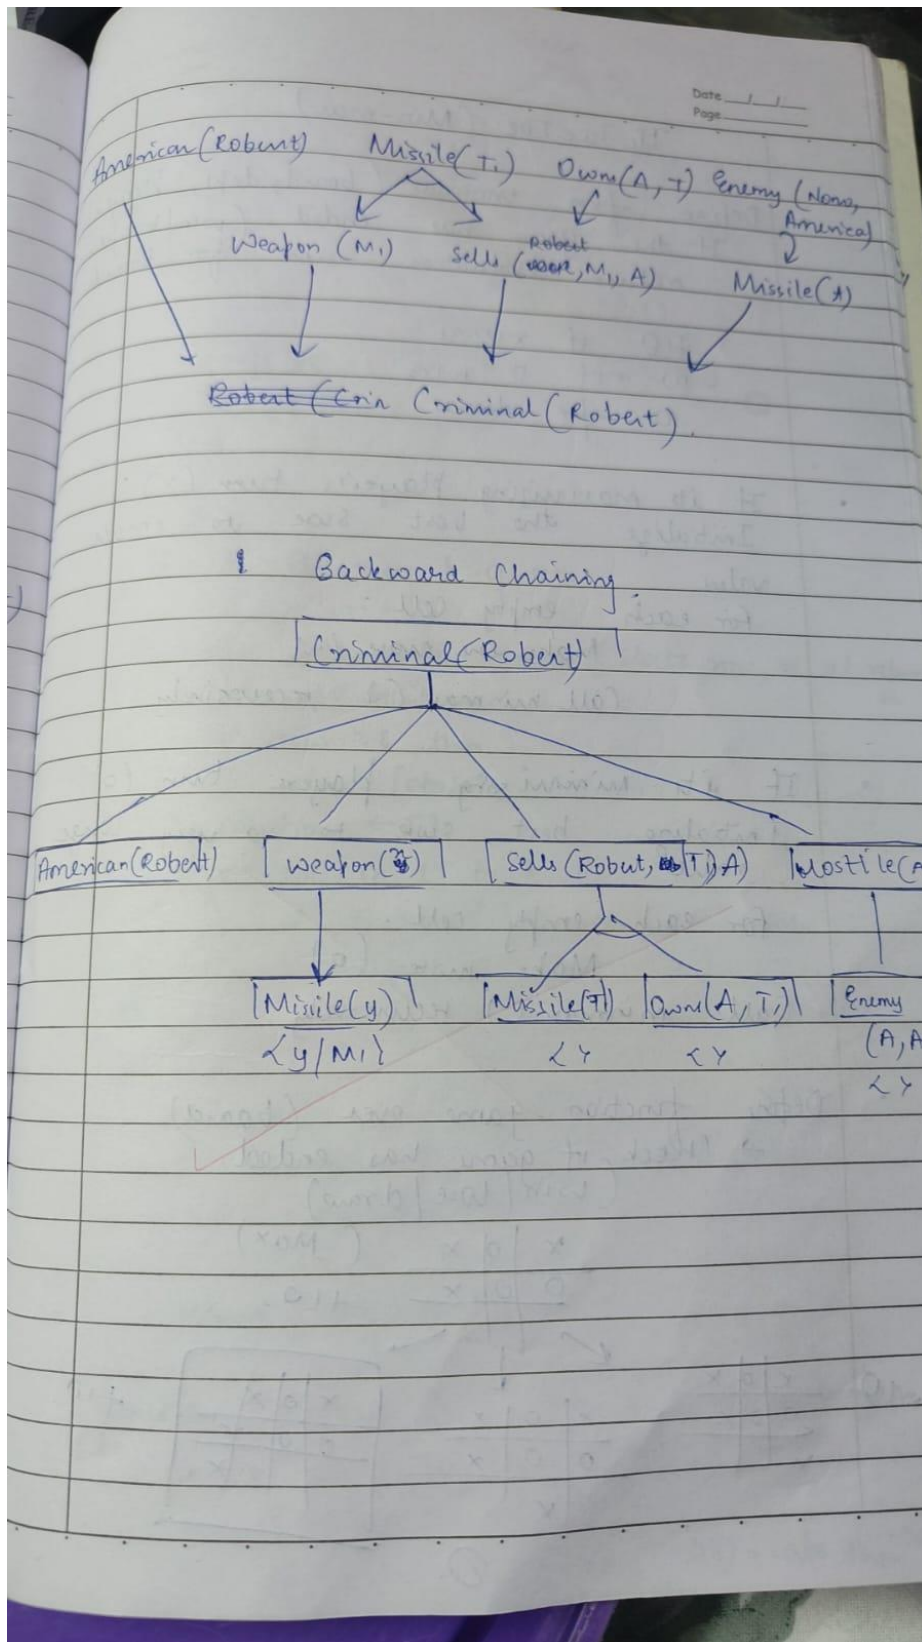 Date / /
Page
American(Robert) Missile(T₁) Owns(A, T) Enemy (Nono,
America)
Weapon (M₁) Sells (Robert, M₁, A) Missile(A)
Robert (Crin Criminal (Robert).
Backward Chaining.
Criminal(Robert)
American(Robert) Weapon( ) Sells (Robert, T₁, A) Hostile(A
Missile(y) Missile(T₁) Owns(A, T₁) Enemy
<y/M₁} <Y <Y (A, A
<Y